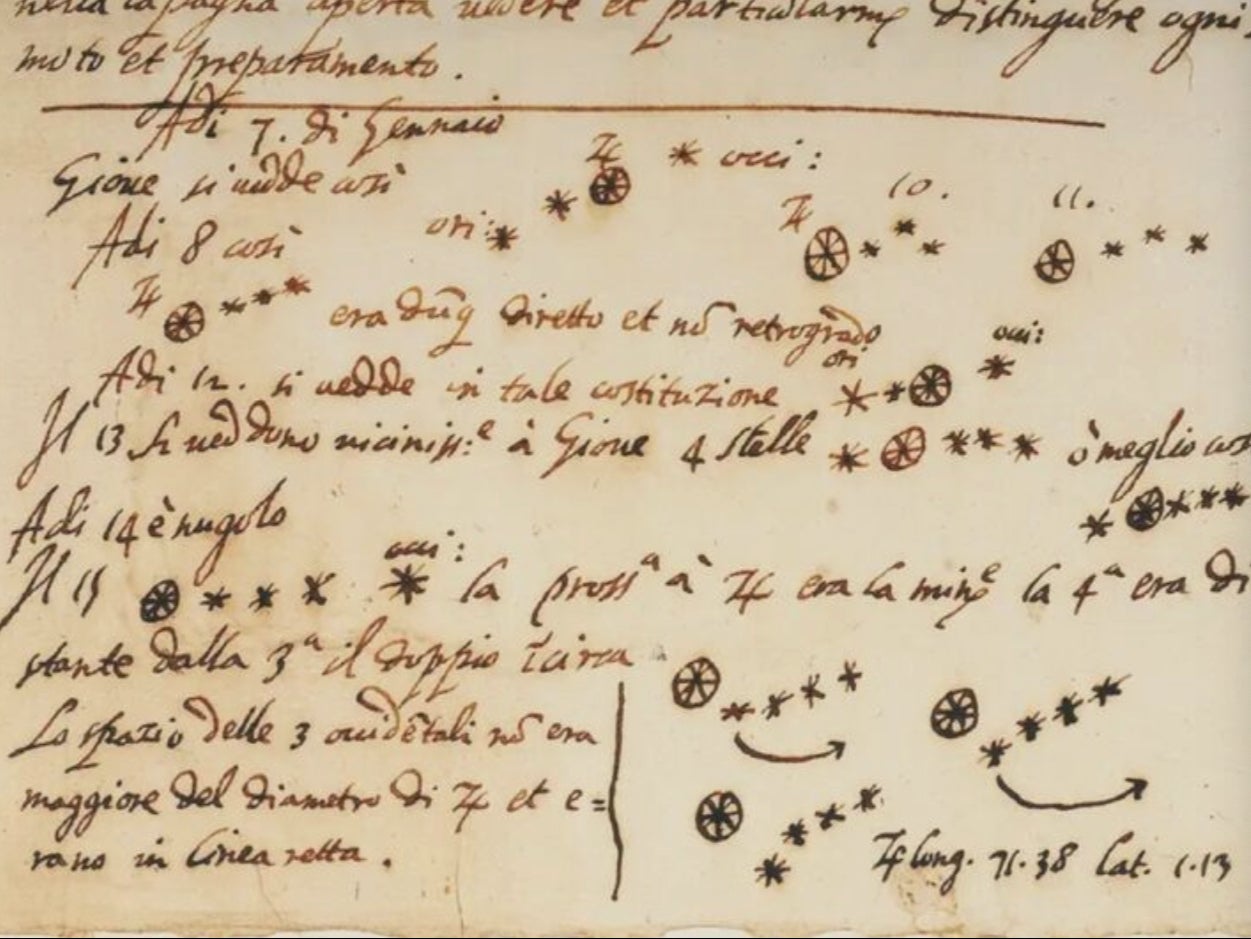 nella capagna aperta vedere et particularm͠e distinguere ogni
moto et preparamento.
Adi 7. di Gennaio
Gioue si uedde così
♃ * occi:
ori: * *
Adi 8 così
♃ 10. 11.
♃ * * *
* * * * * *
era dūq diretto et nō retrogrado
Adi 12. si uedde in tale costituzione ori * * * occi:
Il 13 si ueddono uiciniss:e à Gioue 4 stelle * * * * ò meglio cos
* * * *
Adi 14 è nugolo
Il 15 * * * * occi: la prossa à ♃ era la min͠e la 4a era di
stante dalla 3a il doppio īcirca
Lo spazio delle 3 occidētali nō era
maggiore del diametro di ♃ et e=
rano in linea retta.
* * * * * * * *
* * * *
♃ long. 71.38 lat. 1.13